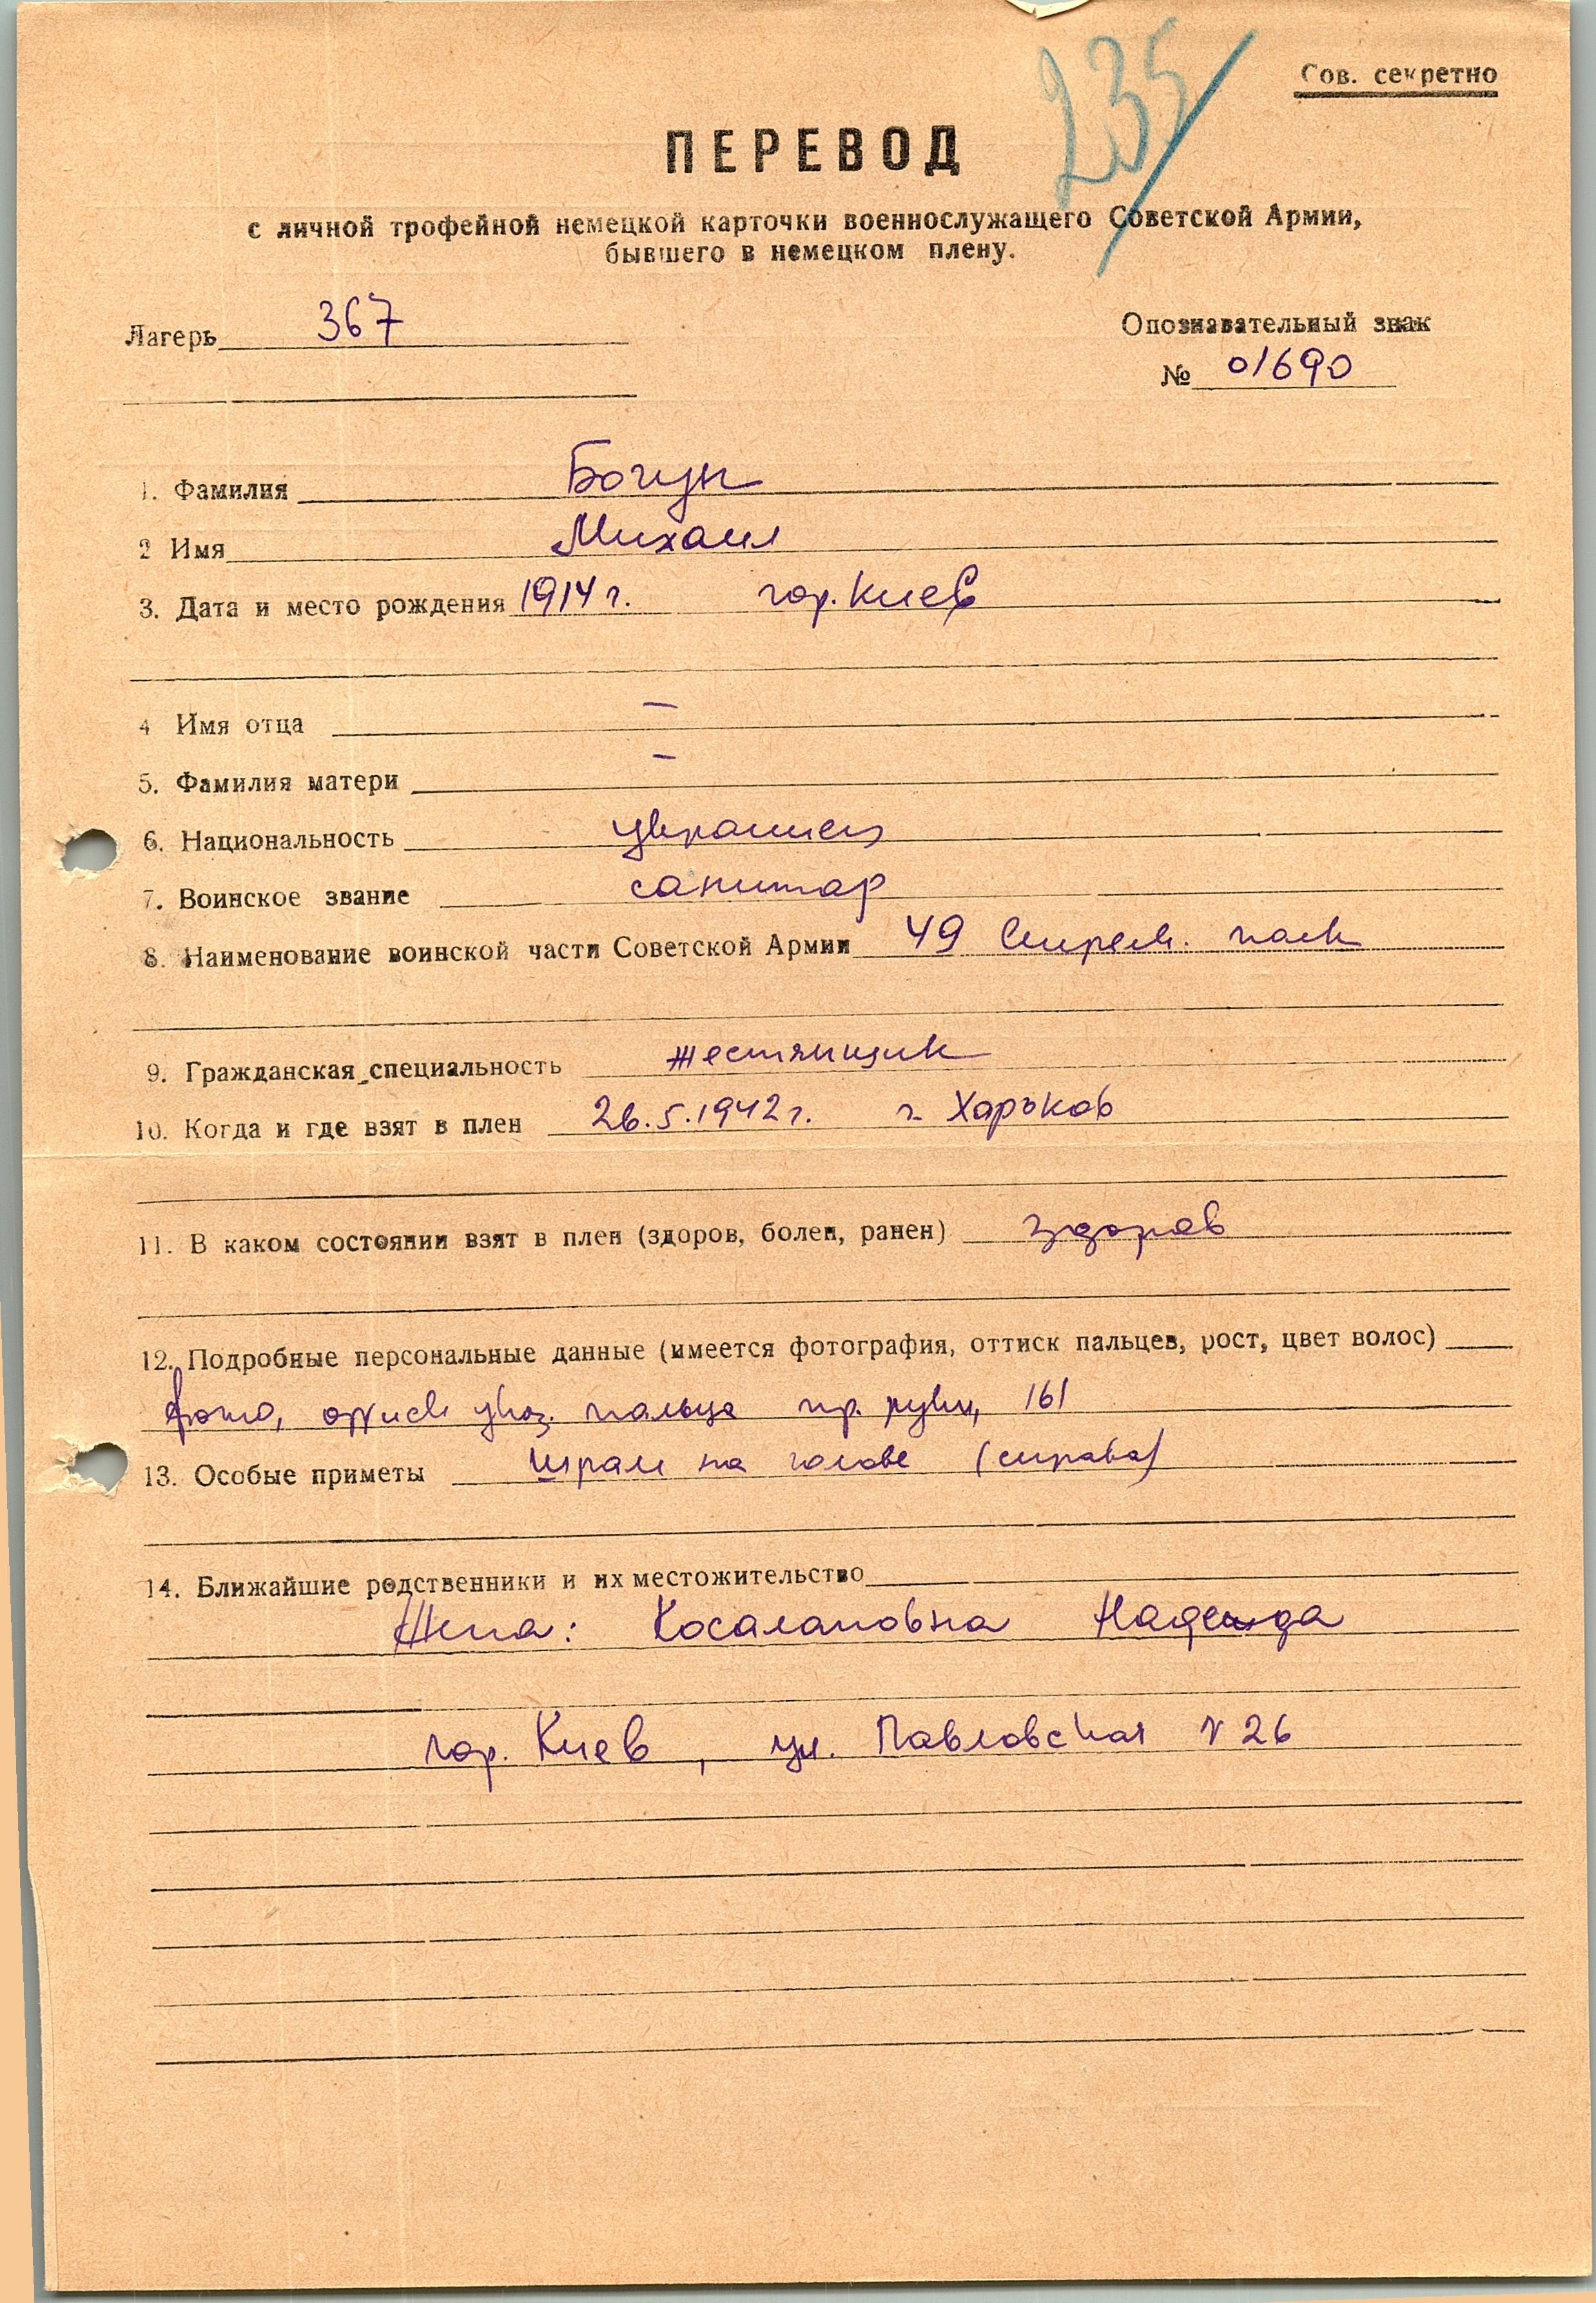 235
Сов. секретно
ПЕРЕВОД
с личной трофейной немецкой карточки военнослужащего Советской Армии,
бывшего в немецком плену.
Лагерь 367
Опознавательный знак
№ 01690
1. Фамилия Богун
2 Имя Михаил
3. Дата и место рождения 1914 г. гор. Киев
4 Имя отца —
5. Фамилия матери —
6. Национальность украинец
7. Воинское звание санитар
8. Наименование воинской части Советской Армии 49 Стрелк. полк
9. Гражданская специальность жестянщик
10. Когда и где взят в плен 26.5.1942 г. г. Харьков
11. В каком состоянии взят в плен (здоров, болен, ранен) здоров
12. Подробные персональные данные (имеется фотография, оттиск пальцев, рост, цвет волос)
фото, оттиск указ. пальца пр. руки, 161
13. Особые приметы Шрам на голове (справа)
14. Ближайшие родственники и их местожительство
Жена: Косалаповна Надежда
гор. Киев, ул. Павловская № 26